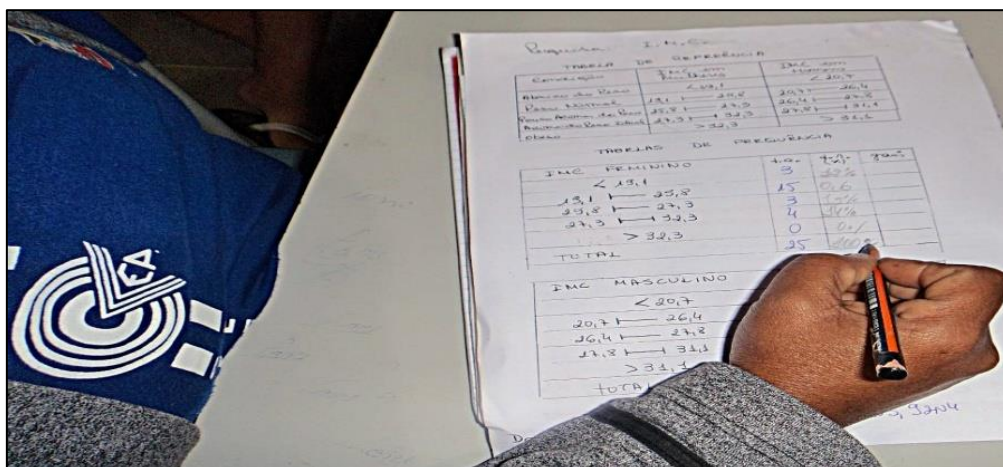 Pesquisa: I.M.C.
TABELA DE REFERÊNCIA
Condição IMC em Mulheres IMC em Homens
Abaixo do Peso < 19,1 < 20,7
Peso Normal 19,1 ⊢ 25,8 20,7 ⊢ 26,4
Pouco Acima do Peso 25,8 ⊢ 27,3 26,4 ⊢ 27,8
Acima do Peso Ideal 27,3 ⊢ 32,3 27,8 ⊢ 31,1
Obeso > 32,3 > 31,1
TABELAS DE FREQUÊNCIA
IMC FEMININO f.a. f.r. (%) graus
< 19,1 3
19,1 ⊢ 25,8 15 0,6
25,8 ⊢ 27,3 3
27,3 ⊢ 32,3 4
> 32,3 0 0%
TOTAL 25 100%
IMC MASCULINO
< 20,7
20,7 ⊢ 26,4
26,4 ⊢ 27,8
27,8 ⊢ 31,1
> 31,1
TOTAL
CEA